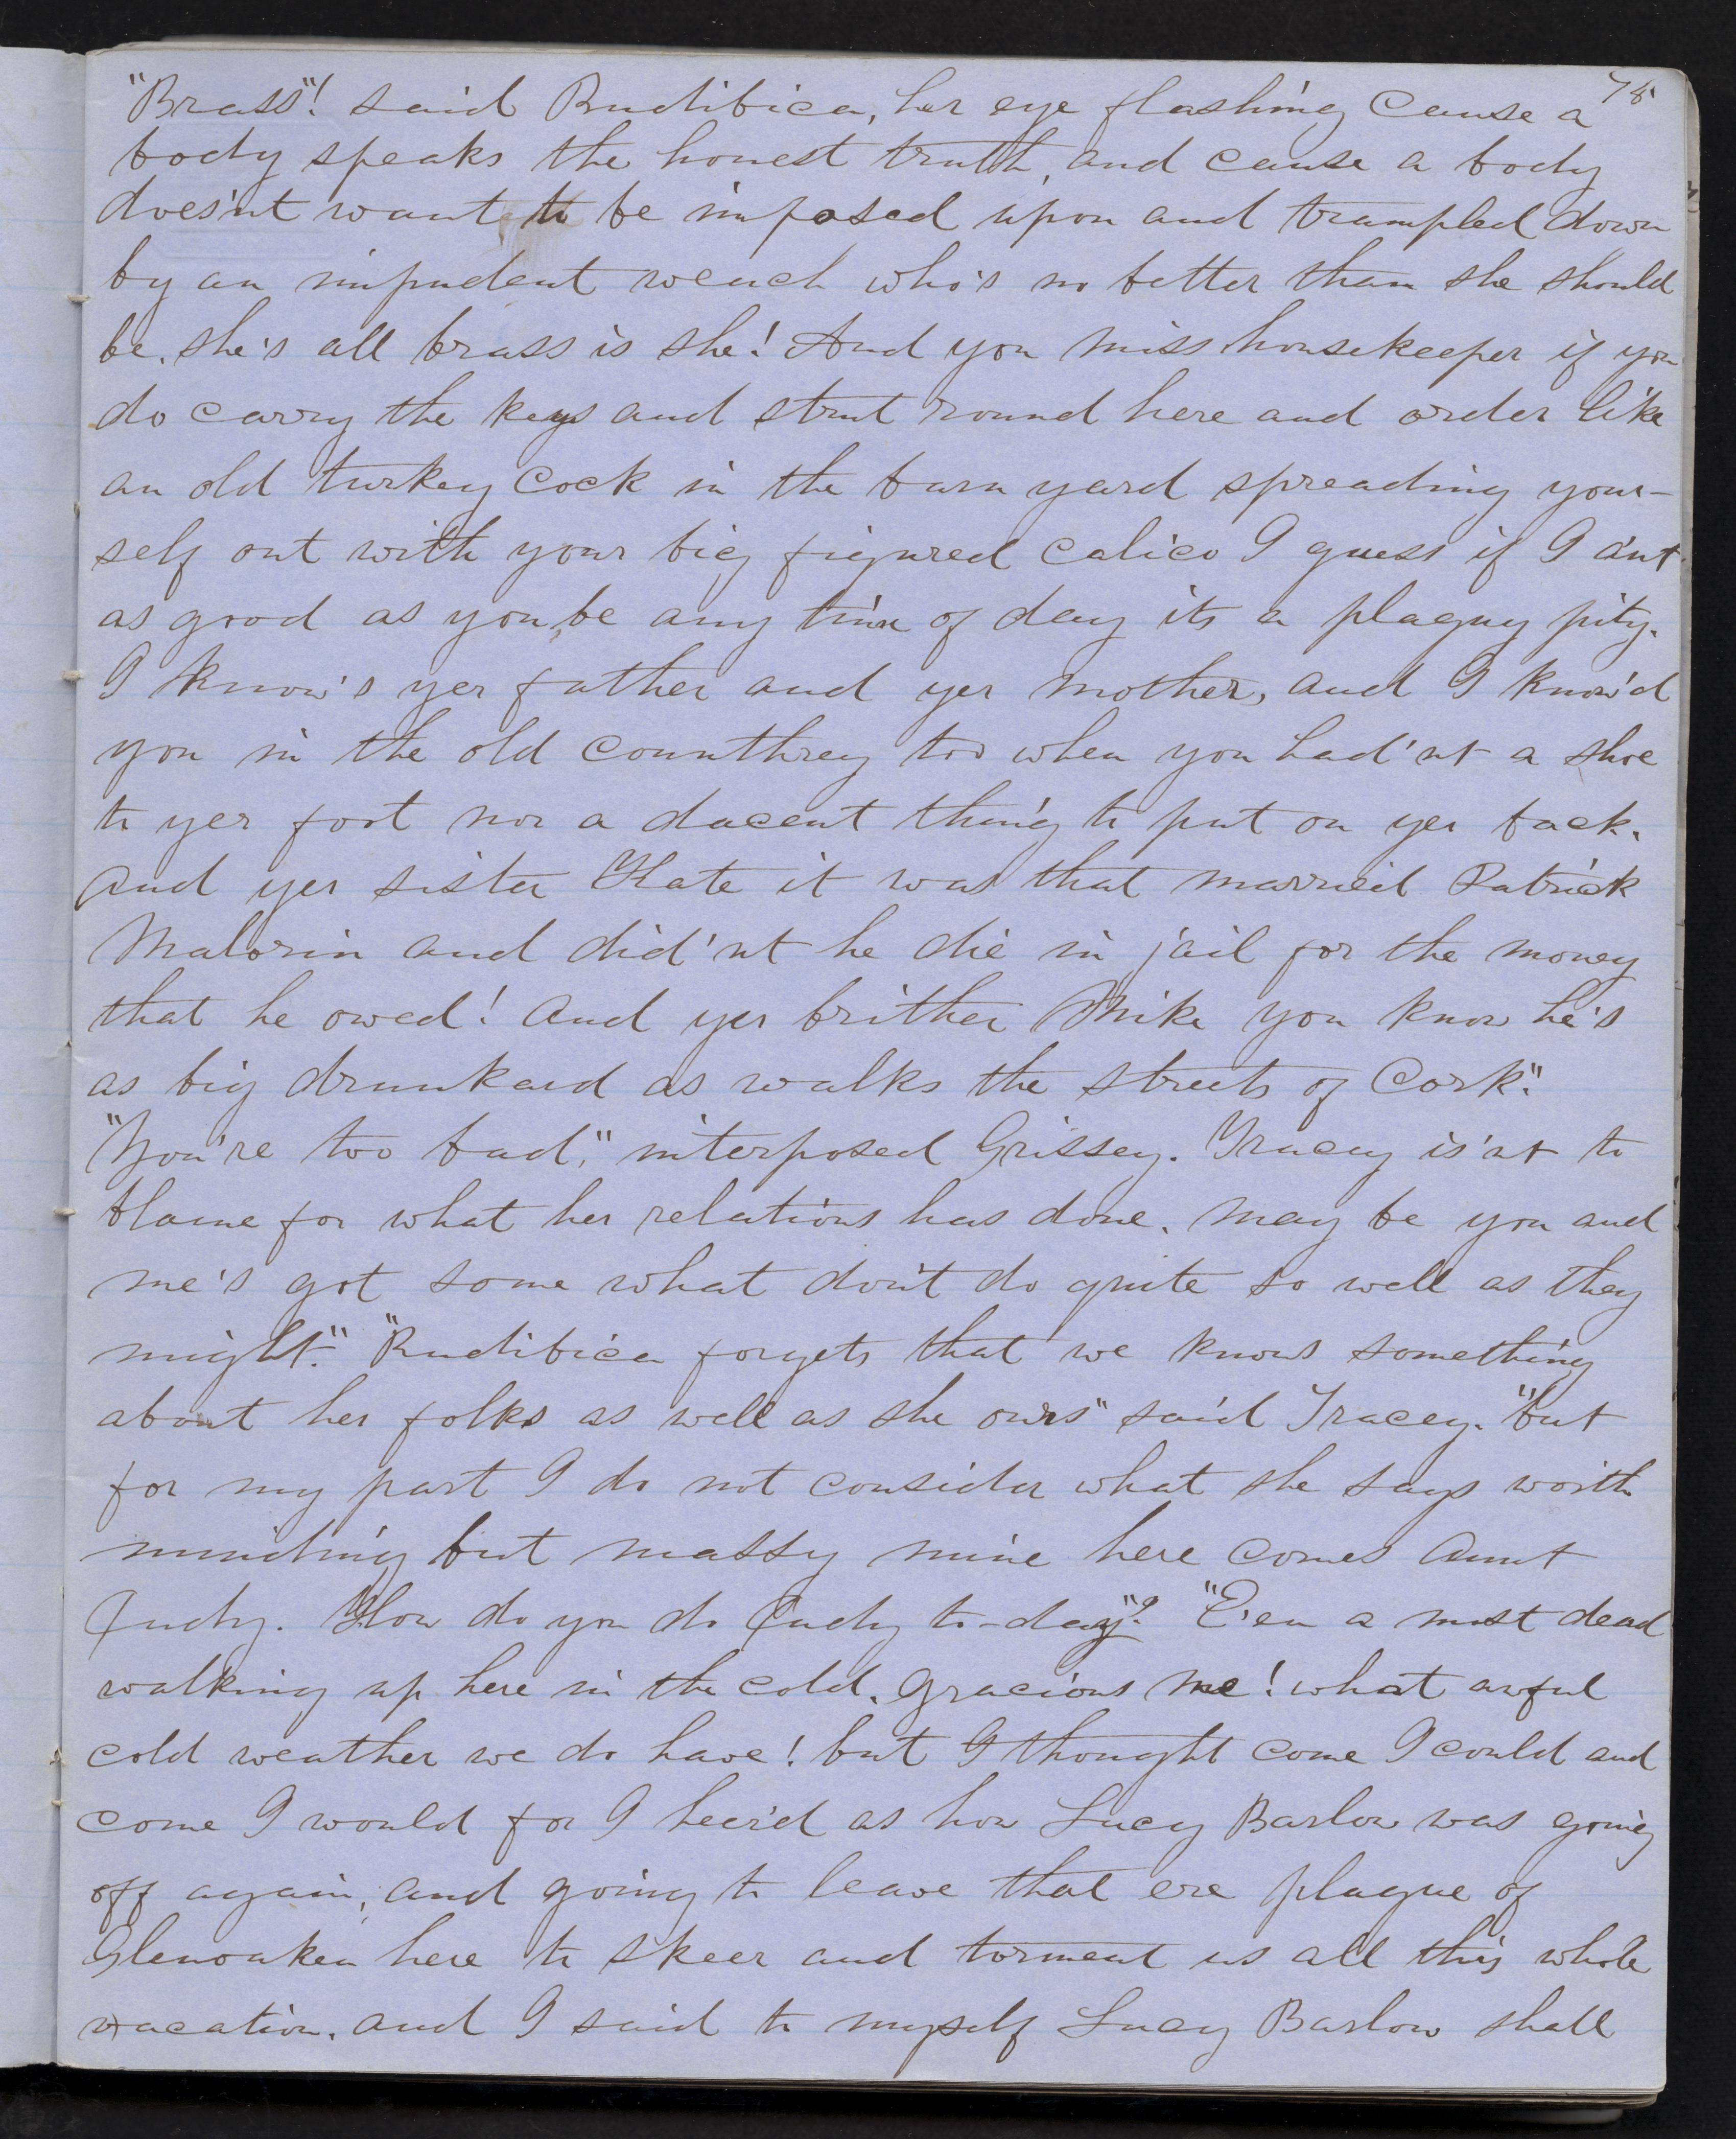 75
"Brass"! said Rudibica, her eye flashing Cause a
body speaks the honest truth, and cause a body
does'nt want to be imposed upon and trampled down
by an impudent wench who's no better than she should
be. she's all brass is she! And you miss housekeeper if you
do carry the keys and strut round here and order like
an old turkey cock in the barn yard spreading your-
self out with your big figured calico I guess if I a'nt
as good as you be any time of day its a plaguy pity.
I know's yer father and yer mother, and I know'd
you in the old counthrey too when you had'nt a shoe
to yer foot nor a dacent thing to put on yer back.
And yer sister Kate it was that married Patrick
Malorin and did'nt he die in jail for the money
that he owed! And yer brither Mike you know he's
as big drunkard as walks the streets of Cork."
"You're too bad," interposed Grissey. Tracey is'nt to
blame for what her relations has done. may be you and
me's got some what don't do quite so well as they
might." "Rudibica forgets that we knows something
about her folks as well as she ours" said Tracey. "but
for my part I do not consider what she says worth
minding but massy mine here comes Aunt
Judy. How do you do Judy to-day"? "E'en a most dead
walking up here in the cold. gracious me! what awful
cold weather we do have! but I thought come I could and
come I would for I heer'd as how Lucy Barlow was going
off again, and going to leave that ere plague of
Glenoaken here to skeer and torment us all this whole
vacation. and I said to myself Lucy Barlow shall